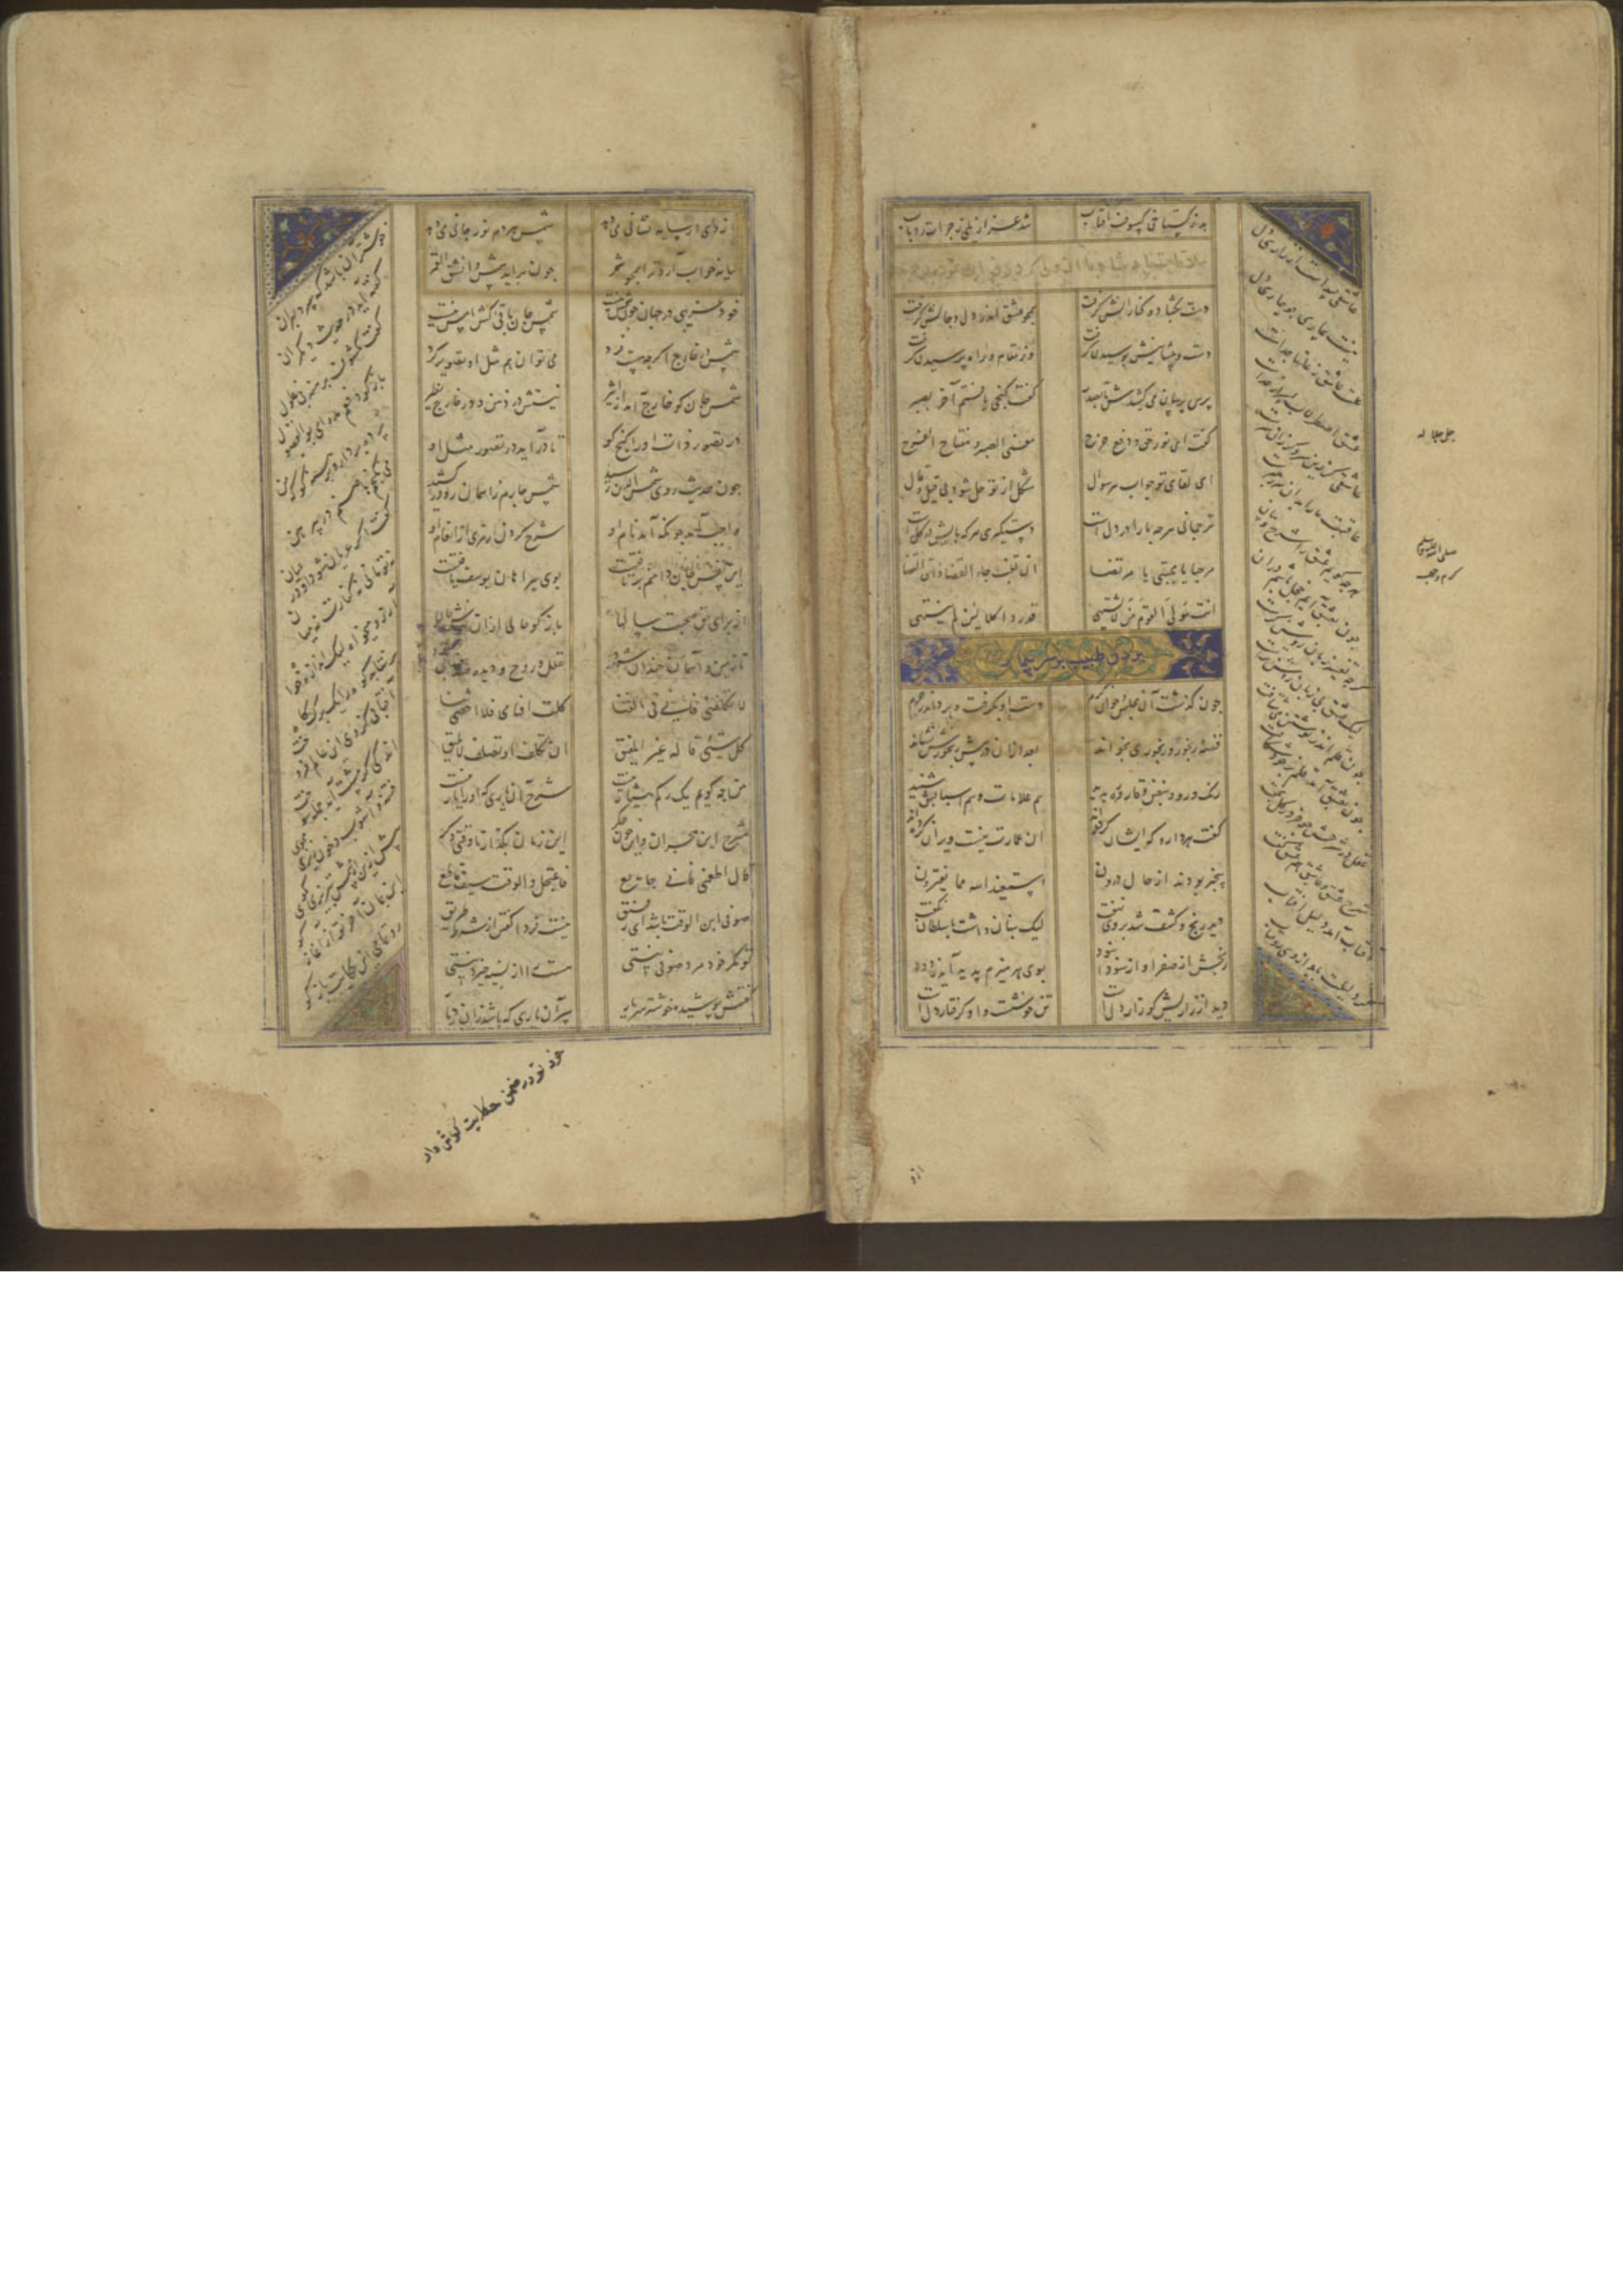 بد ز گستاخی کسوف آفتاب شد عزازیلی ز جرات رد باب
دست بگشاد و کنارانش گرفت همچو عشق اندر دل و جانش گرفت
دست و پیشانیش بوسیدن گرفت وز مقام و راه پرسیدن گرفت
پرس پرسان می کشیدش تا بصدر گفت گنجی یافتم آخر بصبر
گفت ای نور حق و دفع حرج معنی الصبر مفتاح الفرج
ای لقای تو جواب هر سوال مشکل از تو حل شود بی قیل و قال
ترجمانی هرچه ما را در دل است دستگیری هرکه پایش در گل است
مرحبا یا مجتبی یا مرتضی ان تغب جاء القضا ضاق الفضا
انت مولی القوم من لا یشتهی قد ردا کلا لئن لم ینتهی
بردن طبیب بر سر بیمار
چون گذشت آن مجلس و خوان کرم دست او بگرفت و برد اندر حرم
قصه رنجور و رنجوری بخواند بعد از آن در پیش رنجورش نشاند
رنگ رو و نبض و قاروره بدید هم علامات و هم اسبابش شنید
گفت هر دارو که ایشان کرده‌اند آن عمارت نیست ویران کرده‌اند
بیخبر بودند از حال درون استعیذ الله مما یفترون
دید رنج و کشف شد بر وی نهفت لیک پنهان داشت با سلطان نگفت
رنجش از صفرا و از سودا نبود بوی هر هیزم پدید آید ز دود
دید از زاریش کو زار دل است تن خوشست و او گرفتار دل است
عاشقی پیداست از زاری دل
نیست بیماری چو بیماری دل
علت عاشق ز علتها جداست
عشق اصطرلاب اسرار خداست
عاشقی گر زین سر و گر زان سرست
عاقبت ما را بدان سر رهبرست
هرچه گویم عشق را شرح و بیان
چون بعشق آیم خجل باشم از آن
گرچه تفسیر زبان روشنگرست
لیک عشق بی زبان روشنترست
چون قلم اندر نوشتن می شتافت
چون بعشق آمد قلم بر خود شکافت
عقل در شرحش چو خر در گل بخفت
شرح عشق و عاشقی هم عشق گفت
آفتاب آمد دلیل آفتاب
گر دلیلت باید از وی رو متاب
جل جلاله
صلی الله علیه وسلم
کرم وجهه
از وی ار سایه نشانی می دهد شمس هر دم نور جانی می دهد
سایه خواب آرد ترا همچو سمر چون برآید شمس انشق القمر
خود غریبی در جهان چون شمس نیست شمس جان باقی کش امس نیست
شمس در خارج اگرچه هست فرد می توان هم مثل او تصویر کرد
شمس جان کو خارج آمد از اثیر نبودش در ذهن و در خارج نظیر
در تصور ذات او را گنج کو تا درآید در تصور مثل او
چون حدیث روی شمس الدین رسید شمس چارم آسمان رو در کشید
واجب آمد چونکه آمد نام او شرح کردن رمزی از انعام او
این نفس جان دامنم برتافتست بوی پیراهان یوسف یافتست
از برای حق صحبت سالها بازگو حالی از آن خوش حالها
تا زمین و آسمان خندان شود عقل و روح و دیده صد چندان شود
لا تکلفنی فانی فی الفنا کلت افهامی فلا احصی ثنا
کل شیئی قاله غیر المفیق ان تکلف او تصلف لا یلیق
من چه گویم یک رگم هشیار نیست شرح آن یاری که او را یار نیست
شرح این هجران و این خون جگر این زمان بگذار تا وقتی دگر
قال اطعمنی فانی جایع فاعتجل والوقت سیف قاطع
صوفی ابن الوقت باشد ای رفیق نیست فردا گفتن از شرط طریق
تو مگر خود مرد صوفی نیستی هست را از نسیه خیزد نیستی
گفتمش پوشیده خوشتر سر یار
خوشتر آن باشد که سر دلبران
گفته آید در حدیث دیگران
گفت مکشوف و برهنه بی غلول
بازگو دفعم مده ای بوالفضول
پرده بردار و برهنه گو که من
می نخسبم با صنم در پیرهن
گفتم ار عریان شود او در عیان
نه تو مانی نه کنارت نه میان
آرزو میخواه لیک اندازه خواه
برنتابد کوه را یک برگ کاه
آفتابی کز وی این عالم فروخت
اندکی گر پیش آید جمله سوخت
فتنه و آشوب و خون ریزی مجوی
بیش ازین از شمس تبریزی مگوی
این ندارد آخر از آغاز گو
رو تمامی این حکایت باز گو
خود تو در ضمن حکایت گوش دار